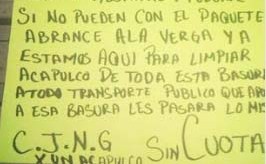 SI NO PUEDEN CON EL PAQUETE
ABRANCE ALA VERGA Y A
ESTAMOS AQUI PARA LIMPIAR
ACAPULCO DE TODA ESTA BASURA
ATODO TRANSPORTE PUBLICO QUE APO
A ESA BASURA LES PASARA LO MIS
C.J.N.G SIN CUOTA
X UN ACAPULCO